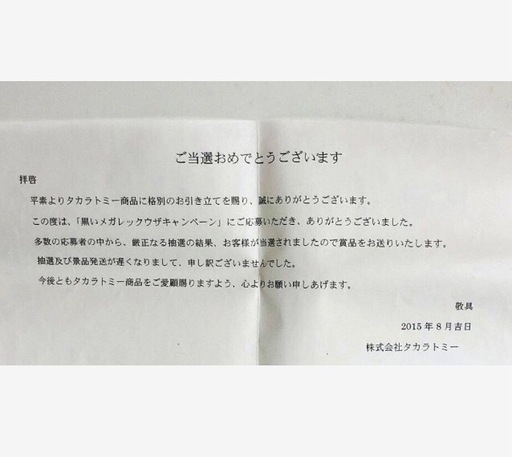 ご当選おめでとうございます
拝啓
平素よりタカラトミー商品に格別のお引き立てを賜り、誠にありがとうございます。
この度は、「黒いメガレックウザキャンペーン」にご応募いただき、ありがとうございました。
多数の応募者の中から、厳正なる抽選の結果、お客様が当選されましたので賞品をお送りいたします。
抽選及び景品発送が遅くなりまして、申し訳ございませんでした。
今後ともタカラトミー商品をご愛顧賜りますよう、心よりお願い申しあげます。
敬具
2015年8月吉日
株式会社タカラトミー